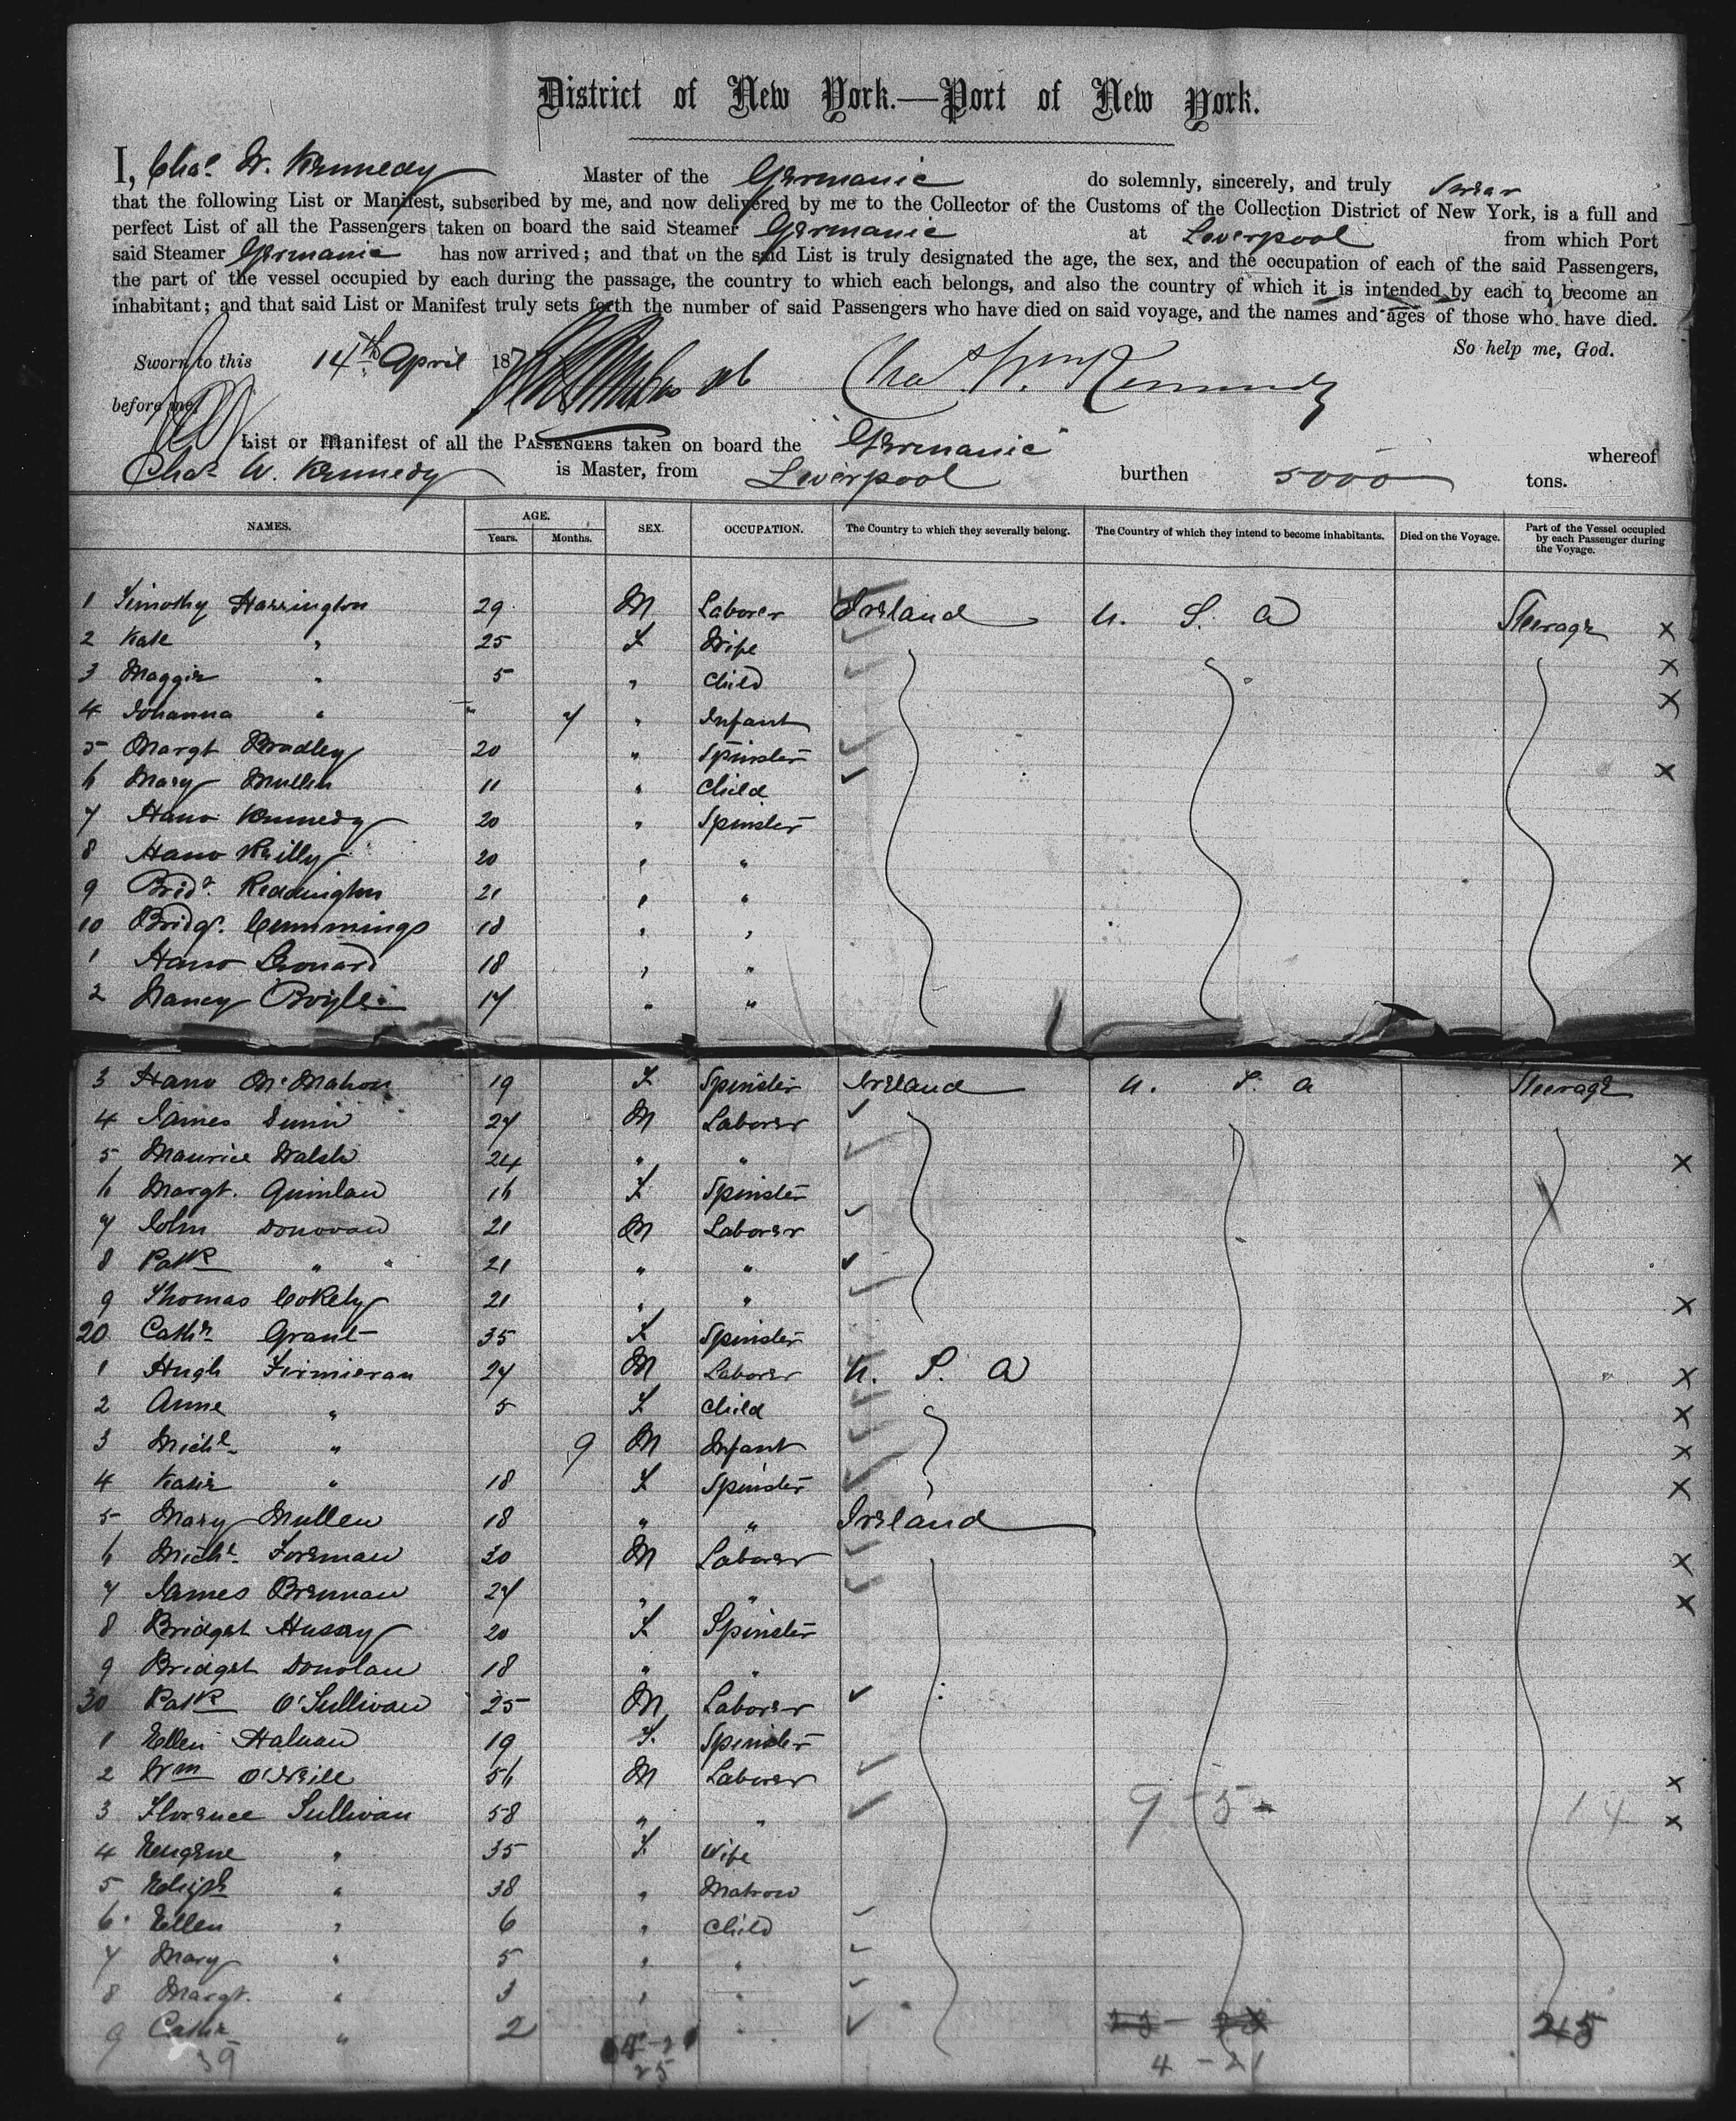 District of New York.—Port of New York.
I, Chas. W. Kennedy Master of the Germanic do solemnly, sincerely, and truly Swear
that the following List or Manifest, subscribed by me, and now delivered by me to the Collector of the Customs of the Collection District of New York, is a full and
perfect List of all the Passengers taken on board the said Steamer Germanic at Liverpool from which Port
said Steamer Germanic has now arrived; and that on the said List is truly designated the age, the sex, and the occupation of each of the said Passengers,
the part of the vessel occupied by each during the passage, the country to which each belongs, and also the country of which it is intended by each to become an
inhabitant; and that said List or Manifest truly sets forth the number of said Passengers who have died on said voyage, and the names and ages of those who have died.
So help me, God.
Sworn to this 14th April 187 Chas. Wm Kennedy
before me,
List or Manifest of all the PASSENGERS taken on board the "Germanic" whereof
Chas W. Kennedy is Master, from Liverpool burthen 5000 tons.
NAMES. AGE. Years. Months. SEX. OCCUPATION. The Country to which they severally belong. The Country of which they intend to become inhabitants. Died on the Voyage. Part of the Vessel occupied by each Passenger during the Voyage.
1 Timothy Harrington 29 M Laborer Ireland U. S. A Steerage X
2 Kate " 25 F Wife X
3 Maggie " 5 " Child X
4 Johanna " " 7 " Infant
5 Margt Bradley 20 " Spinster X
6 Mary Mullen 11 " Child
7 Hano Kennedy 20 " Spinster
8 Hano Reilly 20 " "
9 Bridt. Reddington 21 " "
10 Bridgt. Cummings 18 " "
1 Hano Leonard 18 " "
2 Nancy Boyle 17 " "
3 Hano McMahon 19 F Spinster Ireland U. S. A Steerage
4 James Dunn 27 M Laborer
5 Maurice Walsh 24 " " X
6 Margt. Quinlan 16 F Spinster
7 John Donovan 21 M Laborer
8 Patk " 21 " "
9 Thomas Cokely 21 " " X
20 Cathe Grant 35 F Spinster
1 Hugh Firmieran 27 M Laborer U. S. A X
2 Anne " 5 F Child X
3 Michl " 9 M Infant X
4 Katie " 18 F Spinster X
5 Mary Mullen 18 " " Ireland
6 Michl Foreman 30 M Laborer X
7 James Brennan 27 " " X
8 Bridget Hussey 20 F Spinster
9 Bridget Donolan 18 " "
30 Patk O'Sullivan 25 M Laborer
1 Ellen Halnan 19 F. Spinster
2 Wm O'Neill 56 M Laborer X
3 Florence Sullivan 58 " " 9-5- 14 X
4 Eugene " 35 F Wife
5 " 38 " Matron
6 Ellen " 6 " Child
7 Mary " 5 " "
8 Margt. " 3 " "
9 Cathe " 2 " 215
39 25 4 - 21